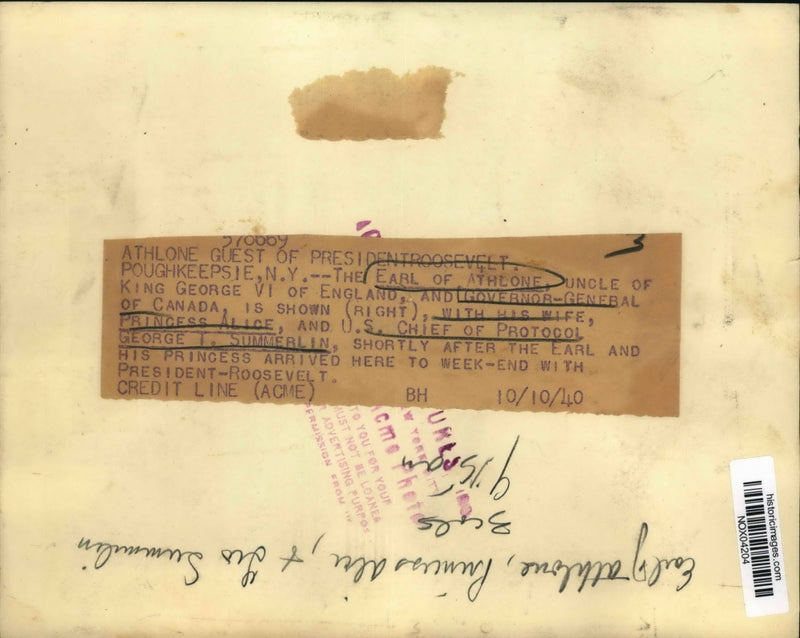 570669
ATHLONE GUEST OF PRESIDENTROOSEVELT.
POUGHKEEPSIE, N.Y.--THE EARL OF ATHLONE, UNCLE OF
KING GEORGE VI OF ENGLAND, AND GOVERNOR-GENERAL
OF CANADA, IS SHOWN (RIGHT), WITH HIS WIFE,
PRINCESS ALICE, AND U.S. CHIEF OF PROTOCOL
GEORGE T. SUMMERLIN, SHORTLY AFTER THE EARL AND
HIS PRINCESS ARRIVED HERE TO WEEK-END WITH
PRESIDENT-ROOSEVELT.
CREDIT LINE (ACME) BH 10/10/40
Acme Photo
NEW YORK CITY
TO YOU FOR YOUR
MUST NOT BE LOANED
ADVERTISING PURPOS
PERMISSION FROM
3 cols
Earl of Athlone, Princess Alice, & Geo Summerlin
historicimages.com
NOX04204